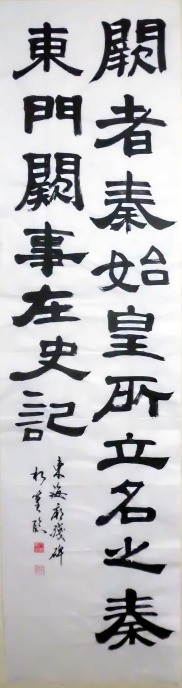 闕者秦始皇所立名之秦
東門闕事在史記
東海廟殘碑